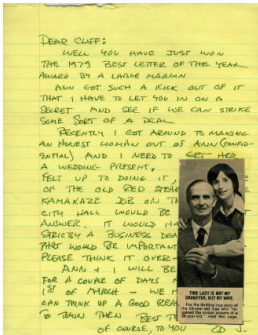 DEAR CLIFF:
WELL YOU HAVE JUST WON
THE 1979 BEST LETTER OF THE YEAR
AWARD BY A LARGE MARGIN
ANN GOT SUCH A KICK OUT OF IT
THAT I HAVE TO LET YOU IN ON A
SECRET AND SEE IF WE CAN STRIKE
SOME SORT OF A DEAL
RECENTLY I GOT AROUND TO MAKING
AN HONEST WOMAN OUT OF ANN (CONFID-
ENTIAL) AND I NEED TO GET HER
A WEDDING PRESENT.
FELT UP TO DOING IT
OF THE OLD RED STEER
KAMAKAZE JOB ON TH
CITY HALL WOULD BE
ANSWER. IT WOULD HA
STRICTLY A BUSINESS DEA
PART WOULD BE IMPORTAN
PLEASE THINK IT OVER-
ANN & I WILL BE
FOR A COUPLE OF DAYS
1ST OF MARCH - WE M
CAN THINK UP A GOOD REA
TO BURN THEN BEST T
OF COURSE, TO YOU ED J.
THIS LADY IS NOT MY
DAUGHTER, BUT MY WIFE.